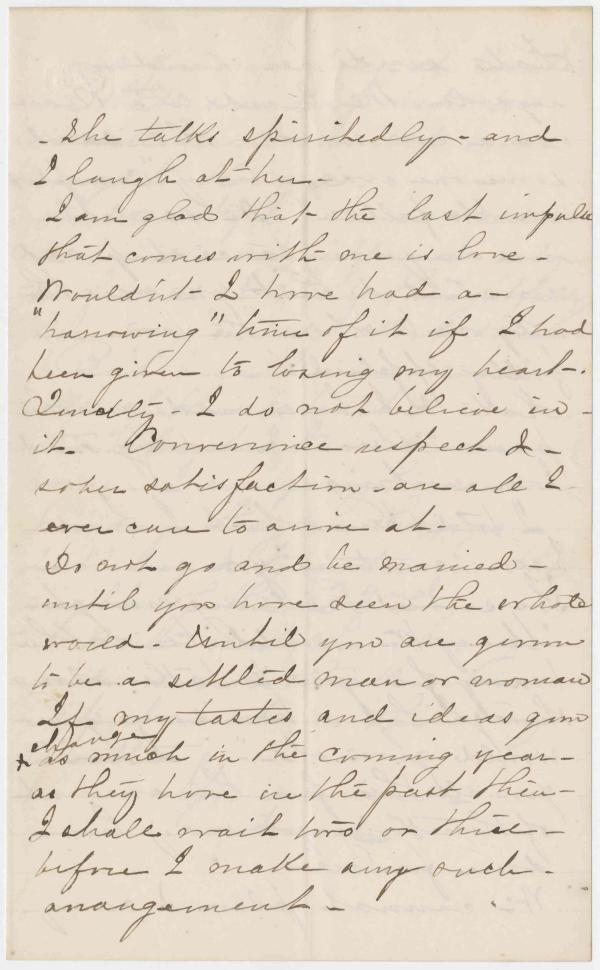 - She talks spiritedly - and
I laugh at her -
I am glad that the last impulse
that comes with me is love -
Wouldn't I have had a -
"harrowing" time of it if I had
been given to losing my heart -
- I do not believe in -
it - Convenience respect & -
sober satisfaction - are all I
ever care to arrive at -
Do not go and be married -
until you have seen the whole
world - Until you are
to be a settled man or woman
If my tastes and ideas
change
x as much in the coming year -
as they have in the past then -
I shall wait two or three -
before I make any such -
arrangement -